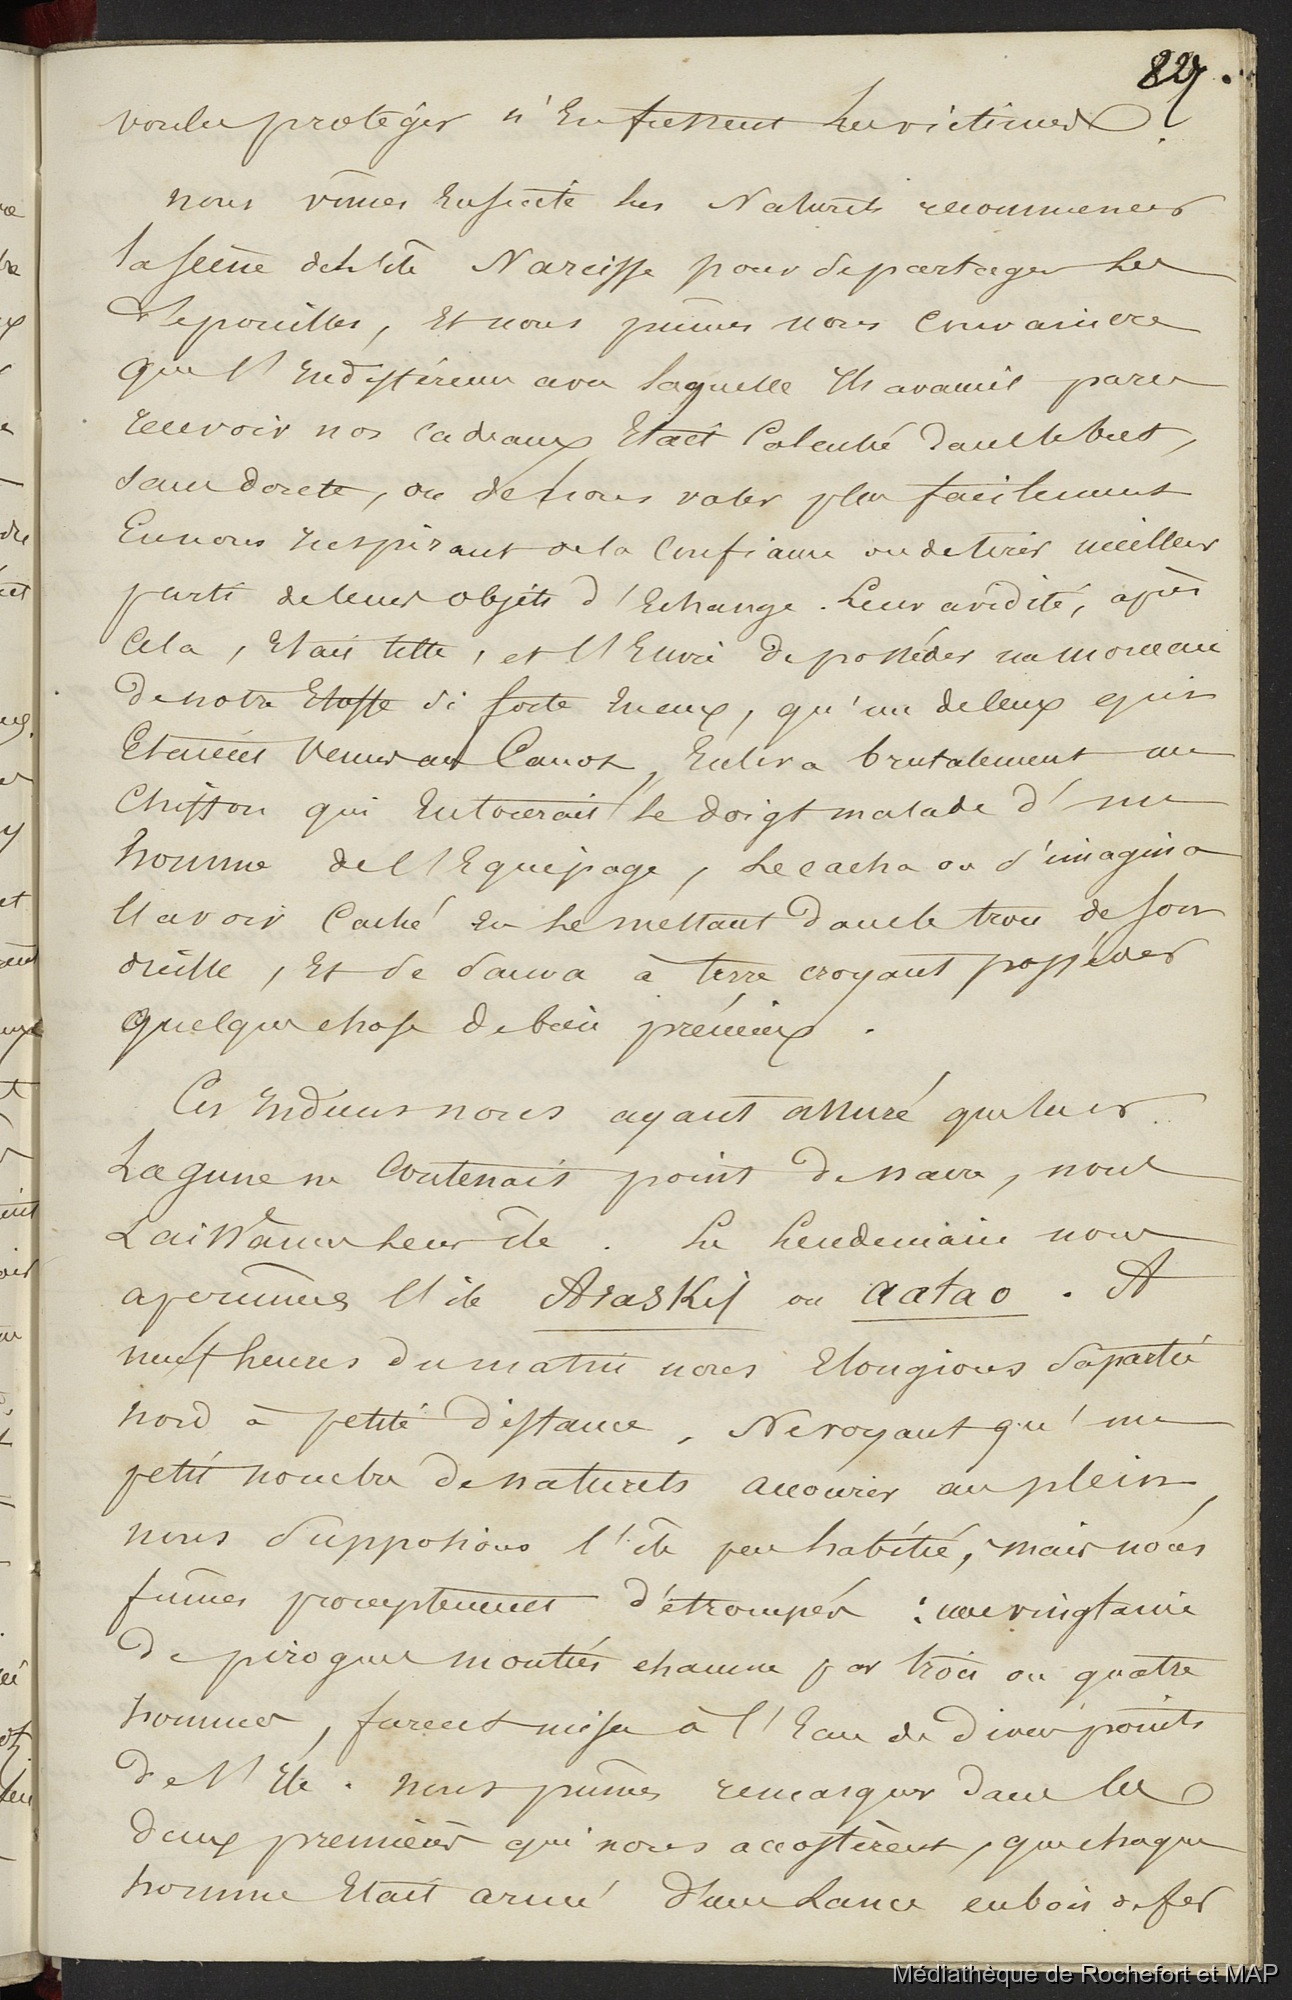 827.
voulu protéger n'En fussent les victimes.
nous vîmes Ensuite les Naturels recommencer
la scène de l'île Narcisse pour se partager les
Depouilles, Et nous pûmes nous convaincre
que l'Indifférence avec laquelle Ils avaient paru
recevoir nos Cadeaux Etait Calculé dans le but,
sans doute, ou de nous voler plus facilement
En nous Inspirant de la Confiance ou de tirer meilleur
parti de leurs objets d'Echange. Leur avidité, après
Cela, Etait telle, et l'Envie de posséder un morceau
de notre Etoffe si forte En eux, qu'un de ceux qui
Etaient Venus au Canot, Enleva brutalement un
Chiffon qui Entourait le doigt malade d'un
homme de l'Equipage, le cacha ou s'imagina
l'avoir Caché En le mettant dans le trou de son
oreille, Et se sauva à terre croyant posséder
quelque chose de bien précieux.
Ces Indiens nous ayant assuré que leur
Lagune ne Contenait point de nacre, nous
Laissâmes leur île. Le Lendemain nous
aperçumes l'île Araskij ou aatao. A
neuf heures du matin nous Elongions sa partie
nord à petite distance, Ne voyant qu'un
petit nombre de naturels accourir au plein,
nous supposions l'île peu habitée, mais nous
fûmes promptement d'étrompés : une vingtaine
de pirogues montées chacune par trois ou quatre
hommes, furent mise à l'Eau de divers points
de l'Ile. nous pûmes remarquer dans les
deux premières qui nous accostèrent, que chaque
homme Etait armé d'une Lance en bois de fer
Médiathèque de Rochefort et MAP